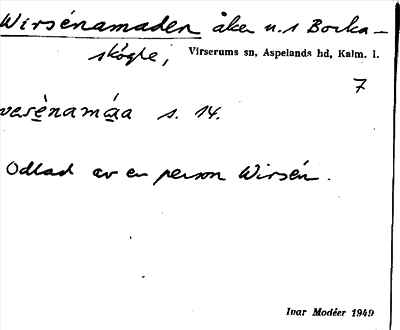 Wirsénamaden åker u. s Borka-
skógle, Virserums sn, Aspelands hd, Kalm. l.
7
vesènamáa s. 14.
Odlad av en person Wirsén.
Ivar Modéer 1949